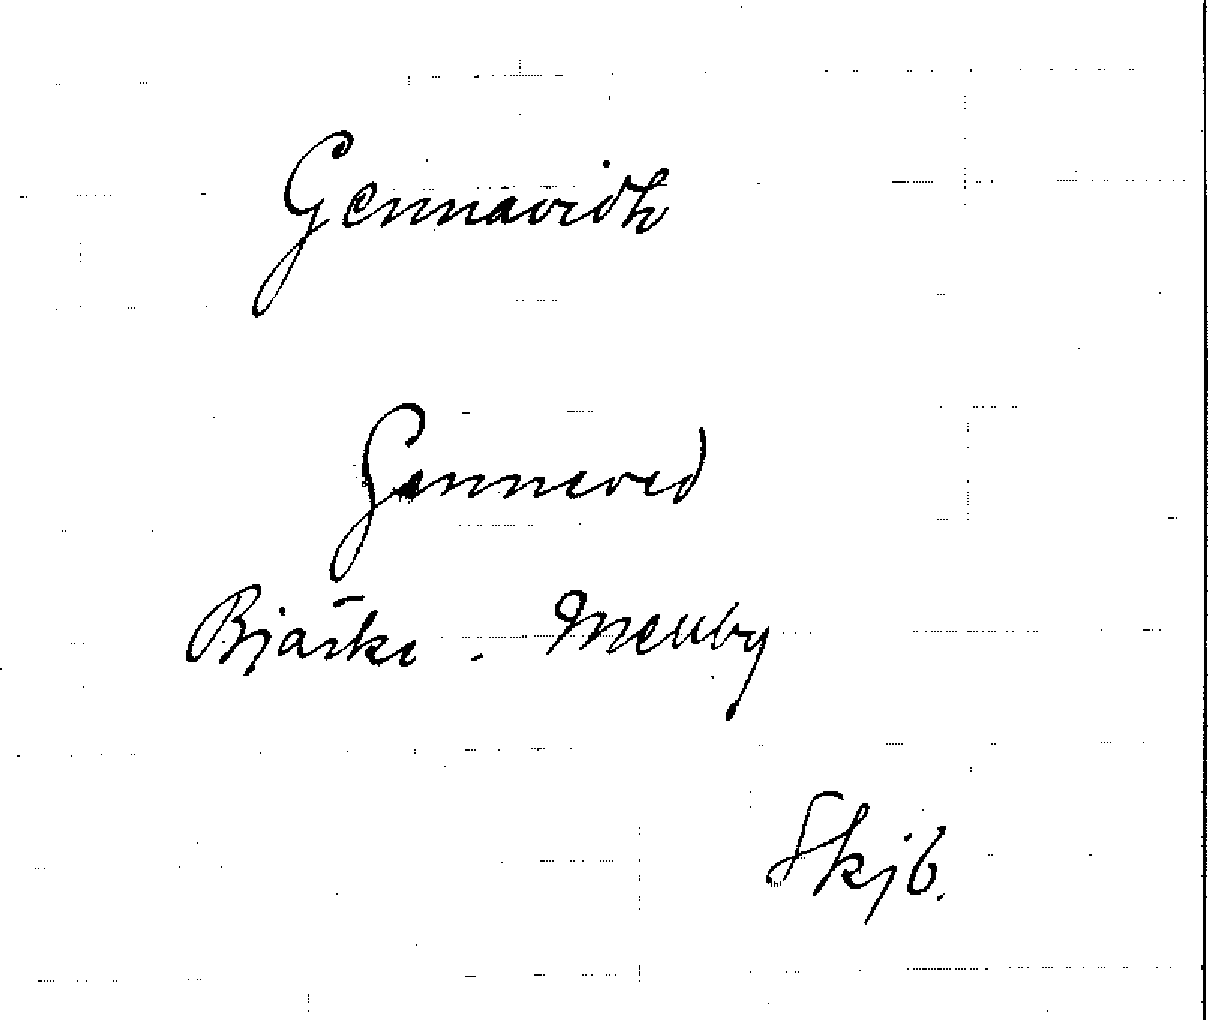 Gennavidh
Gennved
Bjärke. Melby
Skjb.